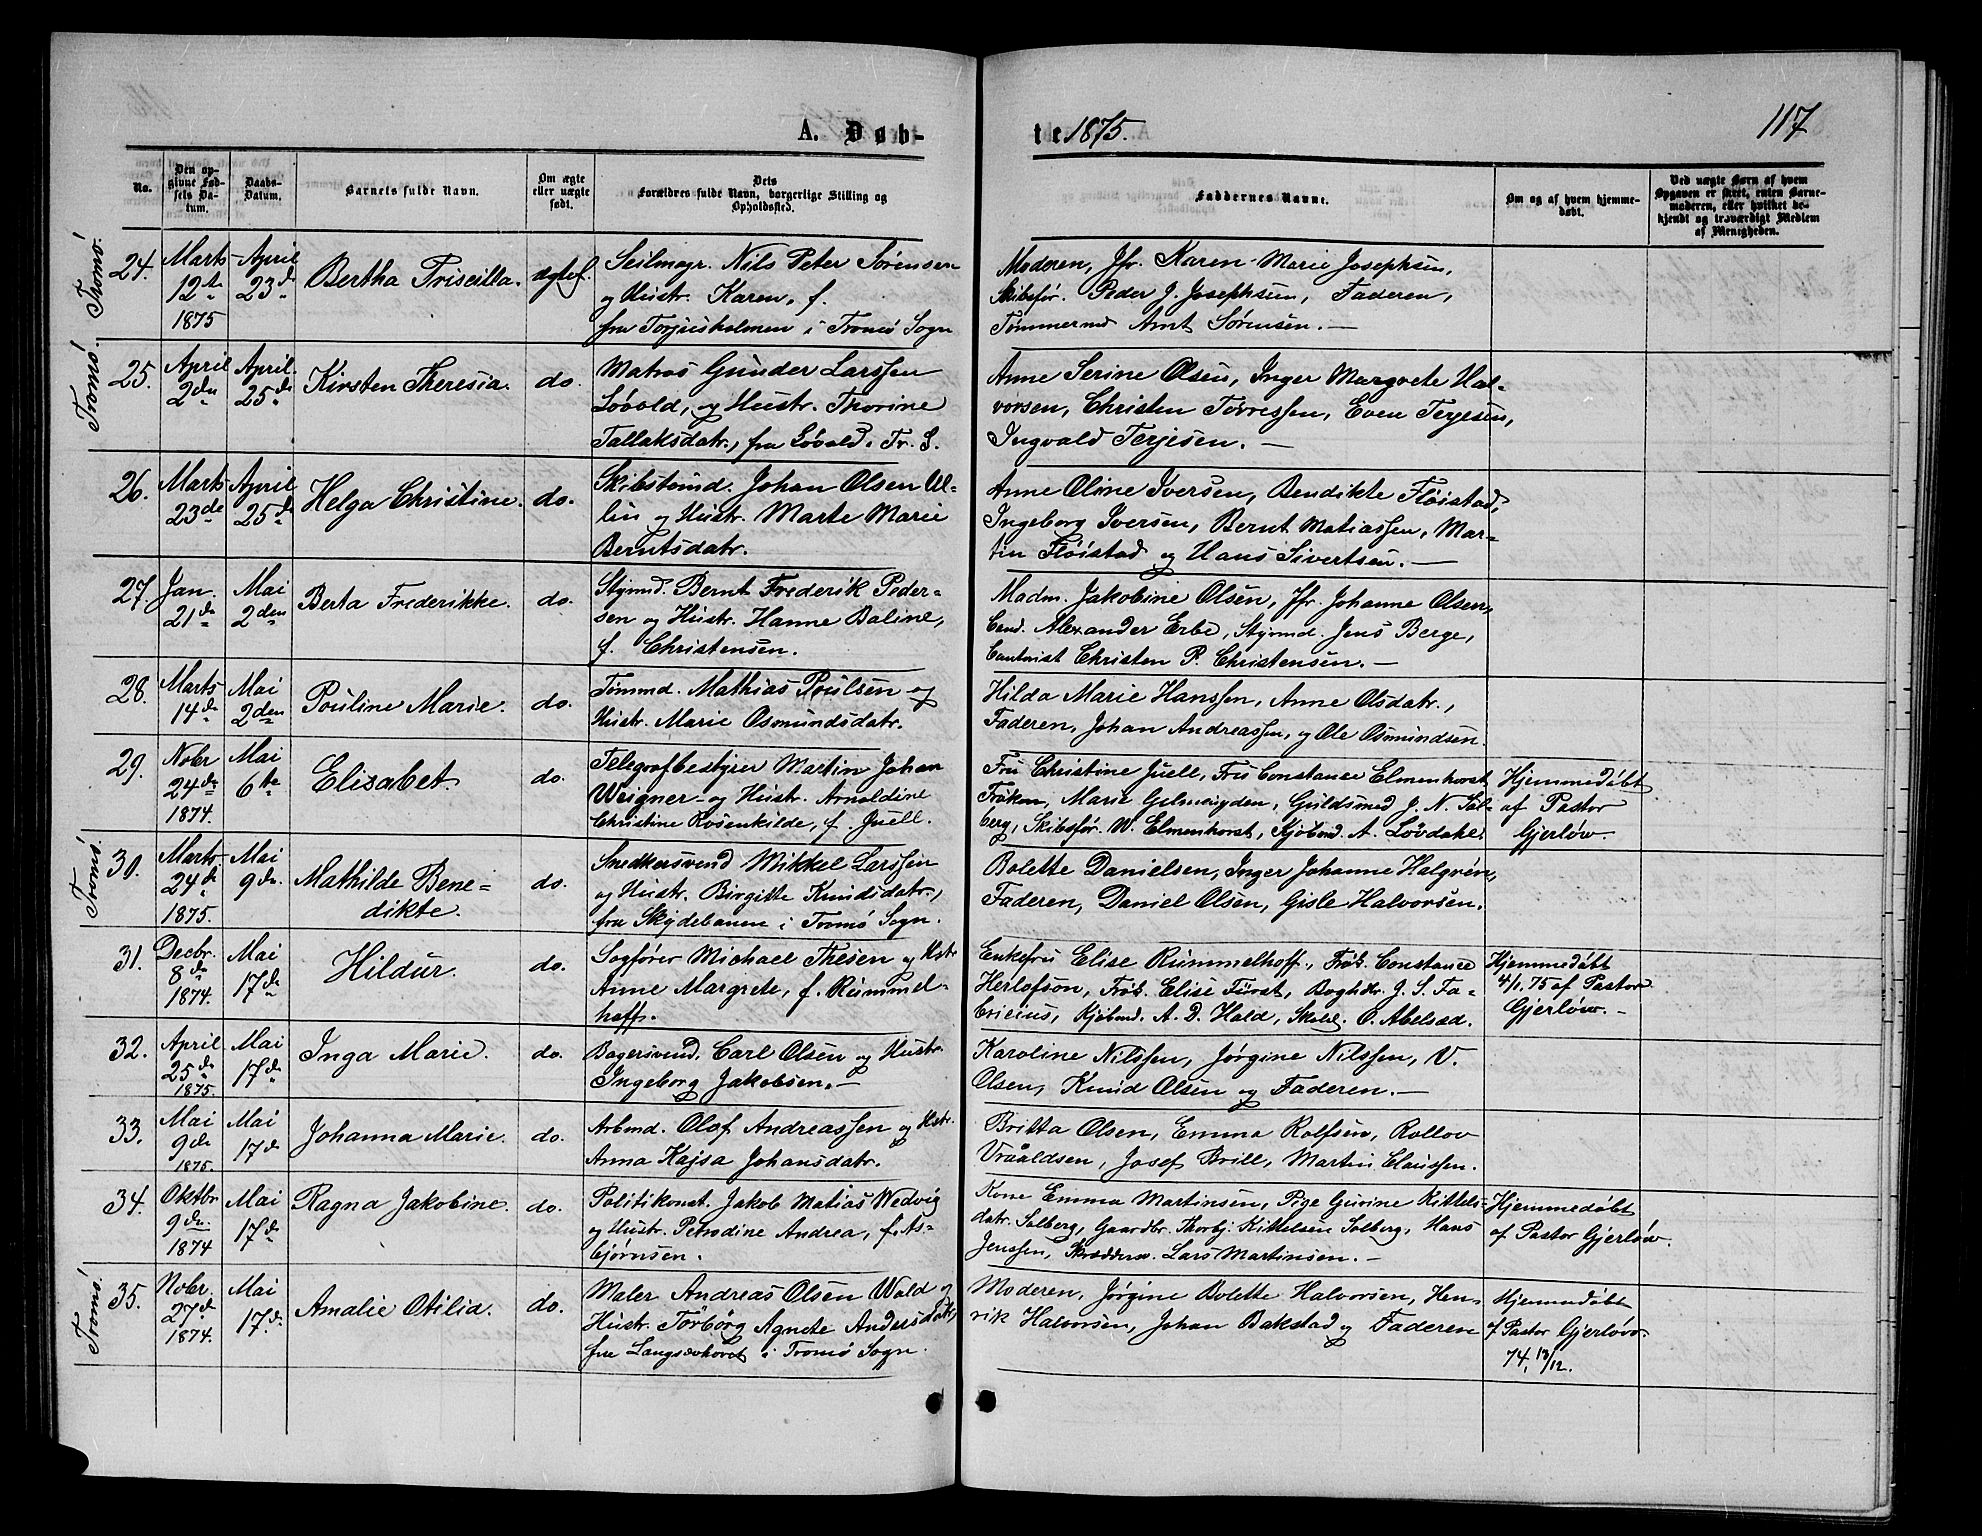 117
A. Døb-
te 1875.
No.
Den op-
givne Fød-
sels Da-
tum.
Daabs-
Datum.
Barnets fulde Navn.
Om ægte
eller uægte
født.
Dets
Forældres fulde Navn, borgerlige Stilling og
Opholdssted.
Faddernes Navne.
Om og af hvem hjemme-
døbt.
Ved uægte Børn af hvem
Opgaven er skeet, enten Barne-
moderen, eller hvilket be-
kjendt og troværdigt Medlem
af Menigheden.
Tromø.
24.
Marts
12te
1875
April
23d
Bertha Priscilla.
ægtef.
Seilmagr. Nils Peter Sørensen
og Hustr. Karen, f.
fra Torjusholmen i Tromø Sogn
Moderen, Jfr. Karen Marie Josephsen,
Skibsfør. Peder J. Josephsen, Faderen,
Tømmermd Arnt Sørensen.—
Tromø.
25.
April
2den
April.
25de
Kirsten Theresia.
do.
Matros Gunder Larssen
Løvold, og Hustr. Thorine
Tallaksdatr., fra Løvold. Tr. S.
Anne Serine Olsen, Inger Margrete Hal-
vorsen, Christen Torressen, Even Terjesen,
Ingvald Terjesen.—
26.
Marts
23de
April
25de
Helga Christine.
do.
Skibstømd. Johan Olsen Ul-
lin og Hustr. Marte Marie
Berntsdatr.
Anne Oline Iversen, Bendikte Fløistad,
Ingeborg Iversen, Bernt Matiassen, Mar-
tin Fløistad og Hans Sivertsen.—
27.
Jan.
21de
Mai
2den
Berta Frederikke.
do.
Stymd. Bernt Frederik Peder-
sen og Hustr. Hanne Boline,
f. Christensen.
Madm. Jakobine Olsen, Jfr. Johanne Olsen,
Cand. Alexander Erbe, Stymd. Jens Berge,
Contorist Christen P. Christensen.—
28.
Marts
14de
Mai
2den
Pouline Marie.
do.
Tømmd. Mathias Poulsen og
Hustr. Marie Osmundsdatr.
Hilda Marie Hanssen, Anne Olsdatr.,
Faderen, Johan Andreassen, og Ole Osmundsen.
29.
Nobr
24de
1874.
Mai
6te
Elisabet.
do.
Telegrafbestyrer Martin Johan
Weigner og Hustr. Arnoldine
Christine Rosenkilde, f. Juell.
Fru Christine Juell, Fru Constanse Elmenhorst
Frøken, Marie Gelmuyden, Guldsmed J. N. Sel-
berg, Skibsfør. W. Elmenhorst, Kjøbmd. A. Løvdahl
Hjemmedøbt
af Pastor
Gjerløw.
Tromø.
30.
Marts
24de
1875.
Mai
9de.
Mathilde Bene-
dikte.
do.
Snedkersvend Mikkel Larssen
og Hustr. Birgitte Knudsdatr.,
fra Skydebanen i Tromø Sogn.
Bolette Danielsen, Inger Johanne Halgrén,
Faderen, Daniel Olsen, Gisle Halvorsen.
31.
Decbr.
8de
1874.
Mai
17de
Hildur.
do.
Sagfører Michael Thesen og Hstr
Anne Margrete, f. Rummel-
hoff.
Enkefru Elise Rummelhoff, Frøk. Constance
Herlofson, Frøk. Elise Fürst, Boghdlr. J. S. Fa-
bricius, Kjøbmd. A. D. Hald, Skolel. O. Abelsæd.
Hjemmedøbt
4/1.75 af Pastor
Gjerløw.—
32.
April
25de
1875.
Mai
17de
Inga Marie.
do.
Bagersvend. Carl Olsen og Hustr.
Ingeborg Jakobsen.—
Karoline Nilssen, Jørgine Nilssen, V.
Olsen, Knud Olsen og Faderen.—
33.
Mai
9de
1875.
Mai
17de
Johanna Marie.
do.
Arbmd. Olof Andreassen og Hstr.
Anna Kajsa Johansdatr.
Britta Olsen, Emma Rolfsen, Rollov
Vraaldsen, Josef Brill, Martin Claussen.
34.
Oktbr
9de.
1874
Mai
17de
Ragna Jakobine.
do.
Politikonst. Jakob Matias Wedvig
og Hustr. Petrodine Andrea, f. As-
bjørnsen.
Kone Emma Martinsen, Pige Gurine Kittels-
datr. Solberg, Gaardbr. Thorbj. Kittelsen Solberg, Hans
Jenssen, Lars Martinsen.—
Hjemmedøbt
af Pastor Gjerløw.
Tromø.
35.
Nobr.
27de
1874.
Mai
17de.
Amalie Otilia.
do.
Maler Andreas Olsen Wold og
Hustr. Torborg Agnete Andersdatr,
fra Langsævhovet i Tromø Sogn.
Moderen, Jørgine Bolette Halvorsen, Hen-
rik Halvorsen, Johan Bakstad og Faderen
Hjemmedøbt
af Pastor Gjerløw
74, 13/12.